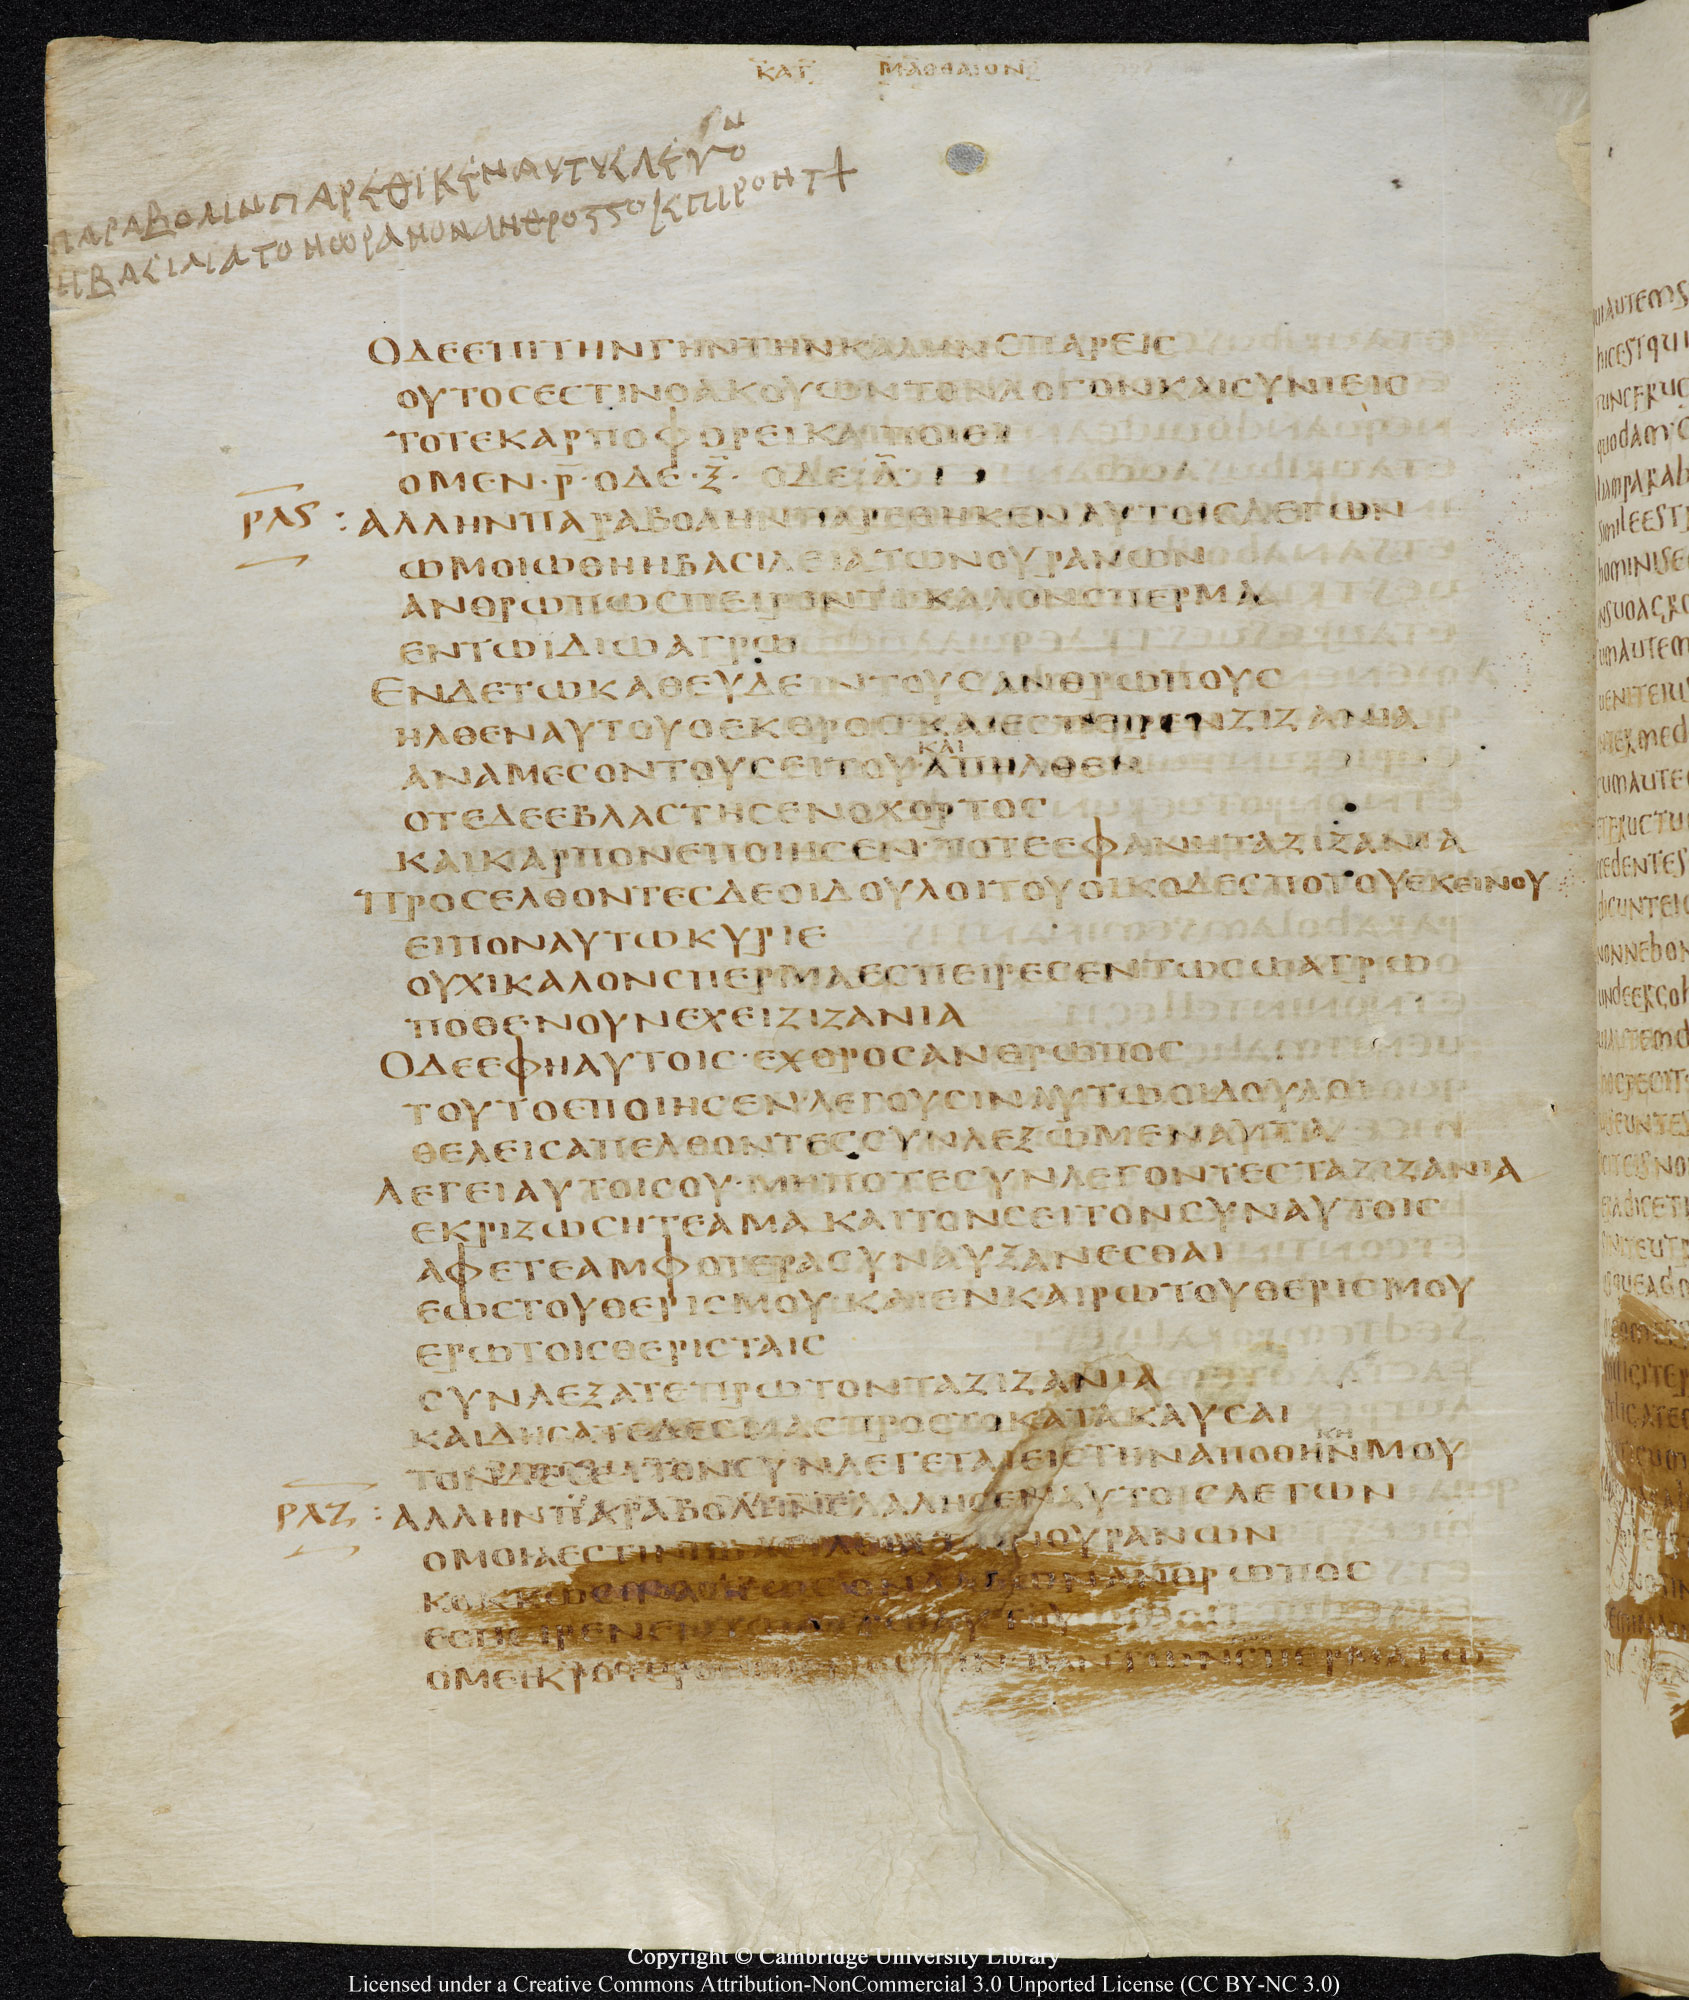 ΚΑΤ ΜΑΘΘΑΙΟΝ
ΠΑΡΑΒΟΛΙΝΠΑΡΕΘΙΚΕΝΑΥΤΥΣΛΕΓΟΝ
ΗΒΑCΙΛΙΑΤΟΝΩΡΑΝΟΝ
ΟΔΕΕΠΙΤΗΝΓΗΝΤΗΝΚΑΛΗΝCΠΑΡΕΙC
ΟΥΤΟCΕCΤΙΝΟΑΚΟΥΩΝΤΟΝΛΟΓΟΝΚΑΙCΥΝΙΕΙC
ΤΟΤΕΚΑΡΠΟΦΟΡΕΙΚΑΙΠΟΙΕΙ
ΟΜΕΝ·Ρ̄·ΟΔΕ·Ξ̄· ΟΔΕ·Λ̄·
ΡΛϚ : ΑΛΛΗΝΠΑΡΑΒΟΛΗΝΠΑΡΕΘΗΚΕΝΑΥΤΟΙCΛΕΓΩΝ
ΩΜΟΙΩΘΗΗΒΑCΙΛΕΙΑΤΩΝΟΥΡΑΝΩΝ
ΑΝΘΡΩΠΩCΠΕΙΡΟΝΤΙΚΑΛΟΝCΠΕΡΜΑ
ΕΝΤΩΪΔΙΩΑΓΡΩ
ΕΝΔΕΤΩΚΑΘΕΥΔΕΙΝΤΟΥCΑΝΘΡΩΠΟΥC
ΗΛΘΕΝΑΥΤΟΥΟΕΚΘΡΟC·ΚΑΙΕCΠΕΙΡΕΝΖΙΖΑΝΙΑ
ΚΑΙ
ΑΝΑΜΕCΟΝΤΟΥCΕΙΤΟΥ·ΑΠΗΛΘΕΝ
ΟΤΕΔΕΕΒΛΑCΤΗCΕΝΟΧΟΡΤΟC
ΚΑΙΚΑΡΠΟΝΕΠΟΙΗCΕΝ·ΤΟΤΕΕΦΑΝΗΤΑΖΙΖΑΝΙΑ
ΠΡΟCΕΛΘΟΝΤΕCΔΕΟΙΔΟΥΛΟΙΤΟΥΟΙΚΟΔΕCΠΟΤΟΥΕΚΕΙΝΟΥ
ΕΙΠΟΝΑΥΤΩΚΥΡΙΕ
ΟΥΧΙΚΑΛΟΝCΠΕΡΜΑΕCΠΕΙΡΕCΕΝΤΩCΩΑΓΡΩ
ΠΟΘΕΝΟΥΝΕΧΕΙΖΙΖΑΝΙΑ
ΟΔΕΕΦΗΑΥΤΟΙC·ΕΧΘΡΟCΑΝΘΡΩΠΟC
ΤΟΥΤΟΕΠΟΙΗCΕΝ·ΛΕΓΟΥCΙΝΑΥΤΩΟΙΔΟΥΛΟΙ
ΘΕΛΕΙCΑΠΕΛΘΟΝΤΕCCΥΝΛΕΞΩΜΕΝΑΥΤΑ
ΛΕΓΕΙΑΥΤΟΙCΟΥ·ΜΗΠΟΤΕCΥΝΛΕΓΟΝΤΕCΤΑΖΙΖΑΝΙΑ
ΕΚΡΙΖΩCΗΤΕΑΜΑ ΚΑΙΤΟΝCΕΙΤΟΝCΥΝΑΥΤΟΙC
ΑΦΕΤΕΑΜΦΟΤΕΡΑCΥΝΑΥΞΑΝΕCΘΑΙ
ΕΩCΤΟΥΘΕΡΙCΜΟΥ·ΚΑΙΕΝΚΑΙΡΩΤΟΥΘΕΡΙCΜΟΥ
ΕΡΩΤΟΙCΘΕΡΙCΤΑΙC
CΥΝΛΕΞΑΤΕΠΡΩΤΟΝΤΑΖΙΖΑΝΙΑ
ΚΑΙΔΗCΑΤΕΔΕCΜΑCΠΡΟCΤΟΚΑΤΑΚΑΥCΑΙ
ΚΗ
ΤΟΝΔΕCΕΙΤΟΝCΥΝΛΕΓΕΤΑΙΕΙCΤΗΝΑΠΟΘΗΝΜΟΥ
ΡΛΖ : ΑΛΛΗΝΠΑΡΑΒΟΛΗΝΕΛΑΛΗCΕΝΑΥΤΟΙCΛΕΓΩΝ
ΟΜΟΙΑΕCΤΙΝΗΒΑCΙΛΕΙΑΤΩΝΟΥΡΑΝΩΝ
ΚΟΚΚΩCΙΝΑΠΕΩCΟΝΛΑΒΩΝΑΝΘΡΩΠΟC
ΕCΠΕΙΡΕΝΕΝΤΩΑΓΡΩΑΥΤΟΥ
ΟΜΕΙΚΡΟΤΕΡΟΝ ΠΑΝΤΩΝCΠΕΡΜΑΤΩ
Copyright © Cambridge University Library
Licensed under a Creative Commons Attribution-NonCommercial 3.0 Unported License (CC BY-NC 3.0)